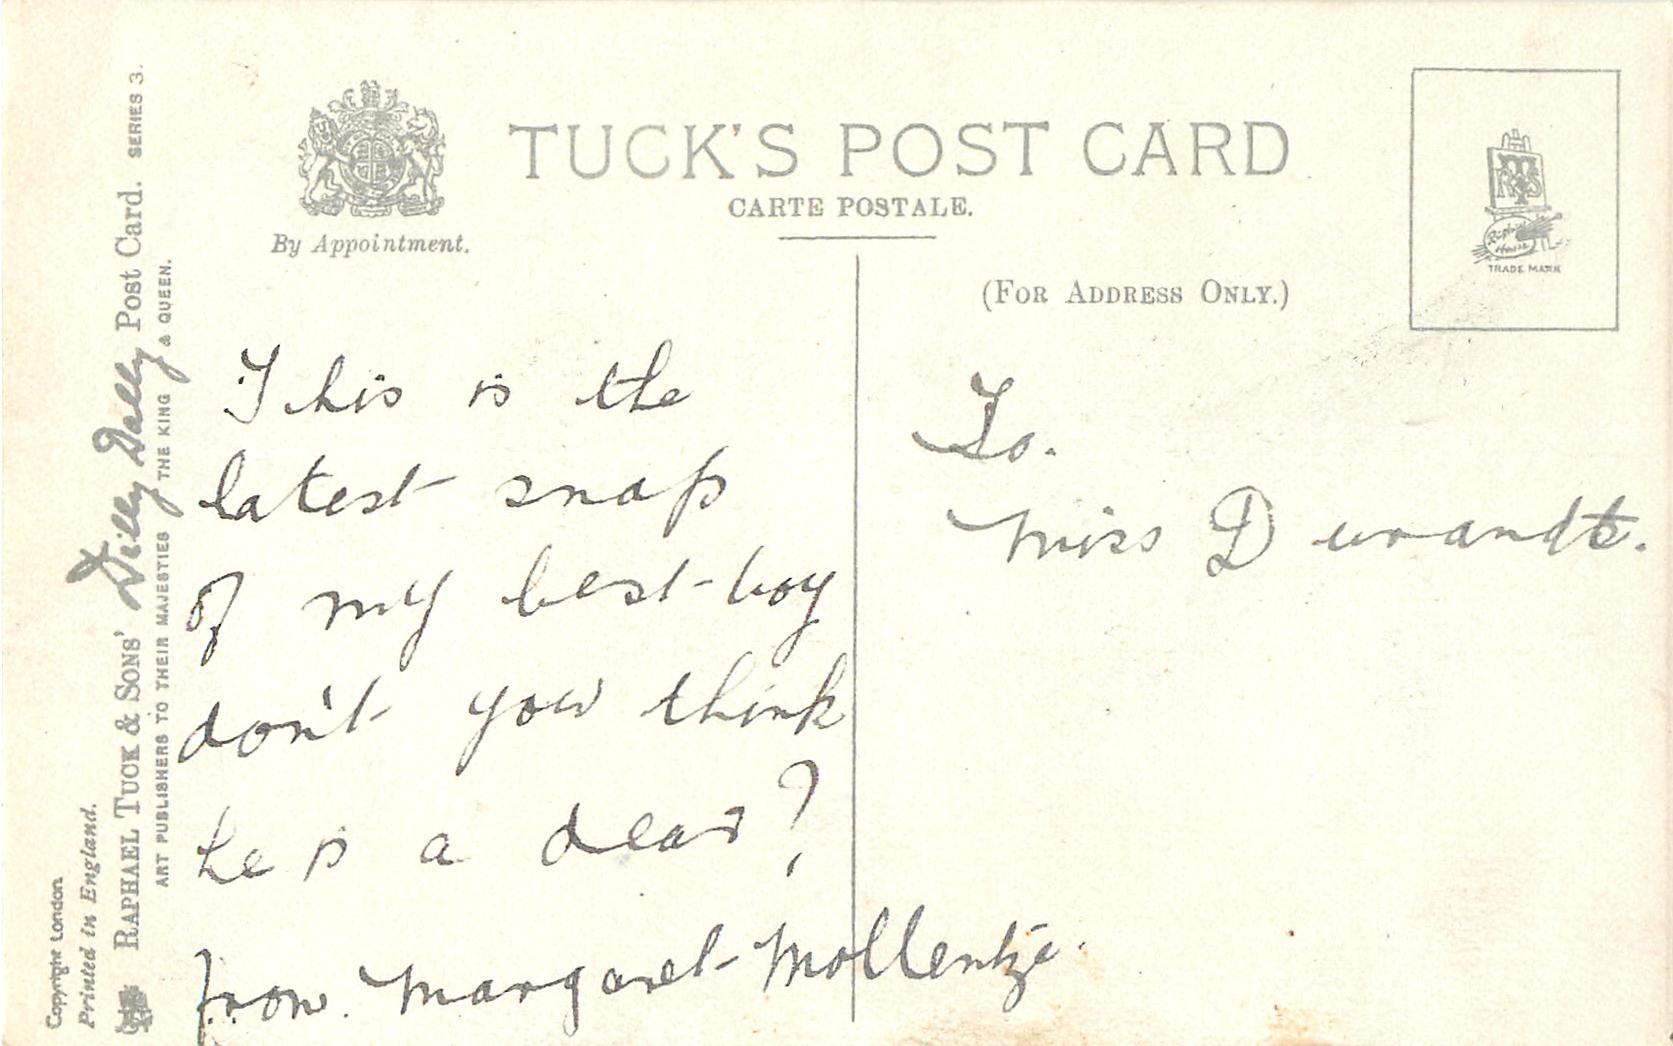 TUCK'S POST CARD
CARTE POSTALE.
By Appointment.
(FOR ADDRESS ONLY.)
TRADE MARK
Copyright London.
Printed in England.
RAPHAEL TUCK & SONS' Dilly Dally Post Card. SERIES 3.
ART PUBLISHERS TO THEIR MAJESTIES THE KING & QUEEN.
This is the
latest snap
of my best boy
don't you think
he is a dear?
from Margaret Mollentze.
To.
Miss D urandt.